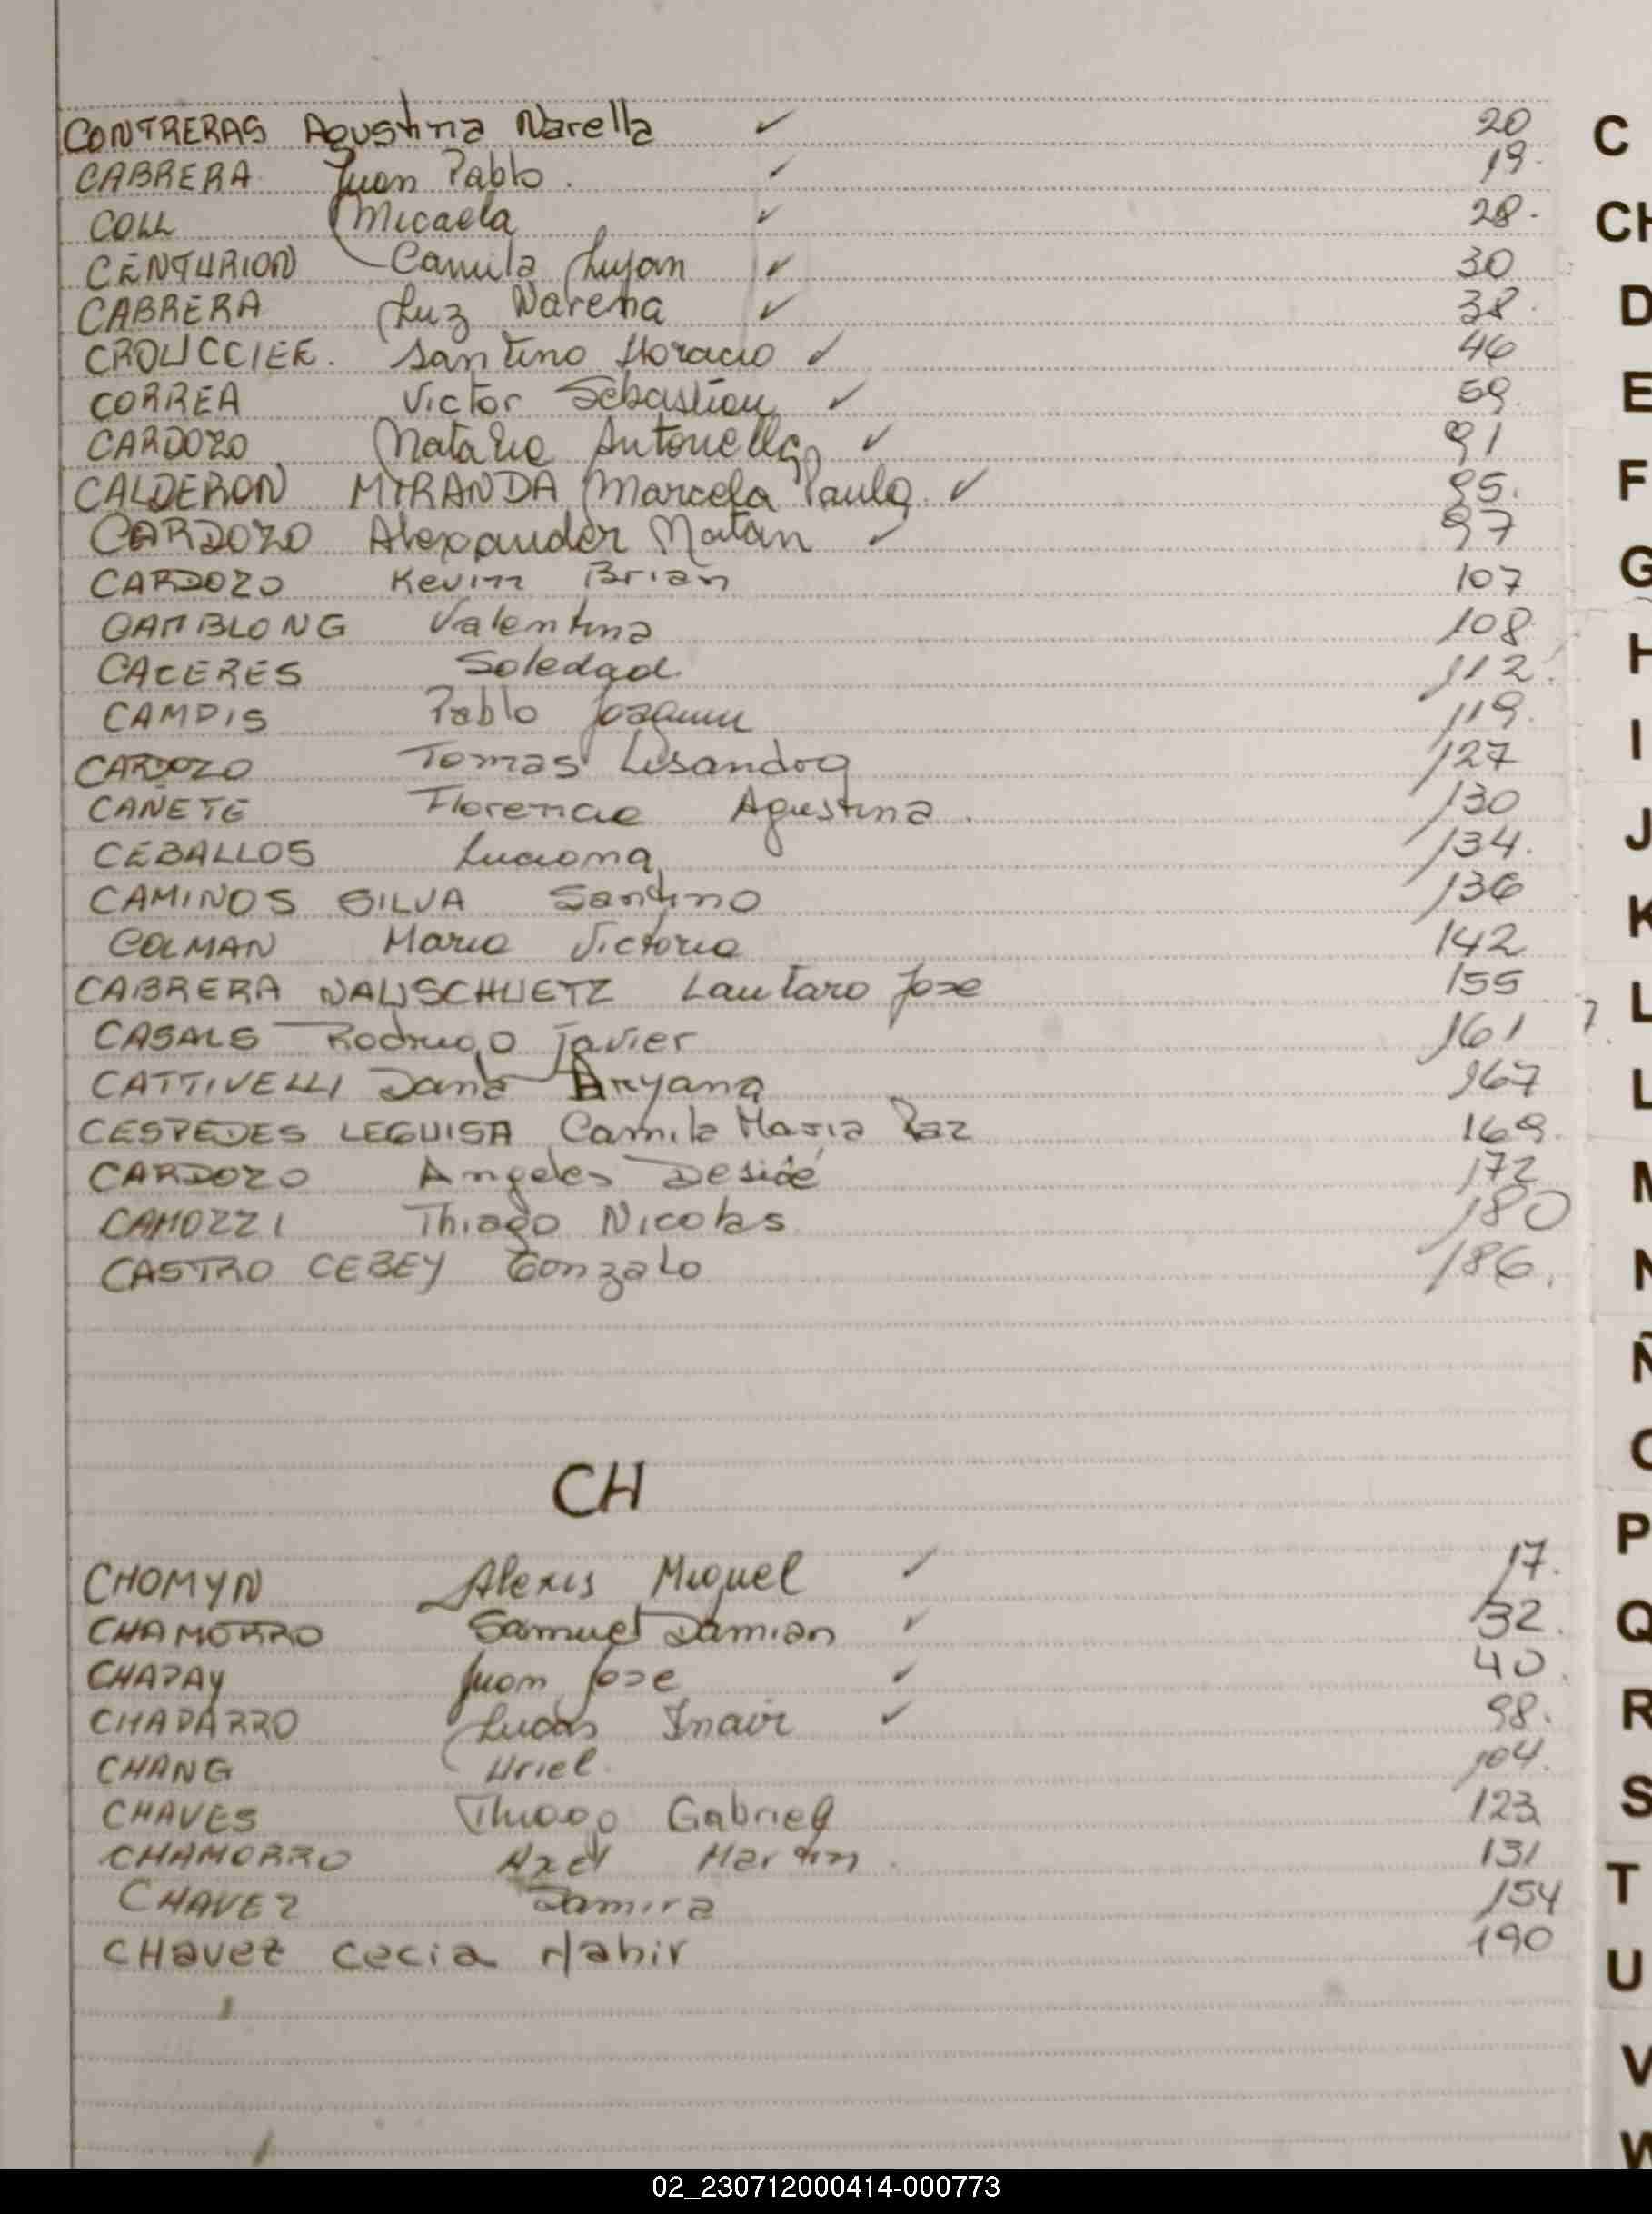 CONTRERAS Agustina Narella ✓ 20
CABRERA Juan Pablo. ✓ 19.
COLL Micaela ✓ 28.
CENTURION Camila Lujan ✓ 30
CABRERA Luz Narena ✓ 38.
CROUCCIEE. Santino Horacio ✓ 46
CORREA Victor Sebastian ✓ 59.
CARDOZO Natalia Antonella ✓ 91
CALDERON MIRANDA Marcela Paula ✓ 95.
CARDOZO Alexander Natan ✓ 97
CARDOZO Kevin Brian 107
CAMBLONG Valentina 108
CACERES Soledad 112.
CAMPIS Pablo Joaquin 119.
CARDOZO Tomas Lisandro 127
CAÑETE Florencia Agustina. 130
CEBALLOS Luciana 134.
CAMINOS SILVA Santino 136
COLMAN Maria Victoria 142
CABRERA NAUSCHUETZ Lautaro Jose 155
CASALS Rodrigo Javier 161
CATTIVELLI Dana Aryana 167
CESPEDES LEGUISA Camila Maria Paz 169.
CARDOZO Angeles Desiré 172
CAMOZZI Thiago Nicolas 180
CASTRO CEBEY Gonzalo 186.
CH
CHOMYN Alexis Miguel ✓ 17.
CHAMORRO Samuel Damian ✓ 32.
CHAPAY Juan Jose ✓ 40.
CHAPARRO Lucas Inair ✓ 98.
CHANG Uriel. 104.
CHAVES Thiago Gabriel 123
CHAMORRO Axel Martin. 131
CHAVEZ Samira 154
CHavez cecia Nahir 190
C
CH
D
E
F
G
H
I
J
K
L
L
M
N
Ñ
O
P
Q
R
S
T
U
V
W
02_230712000414-000773